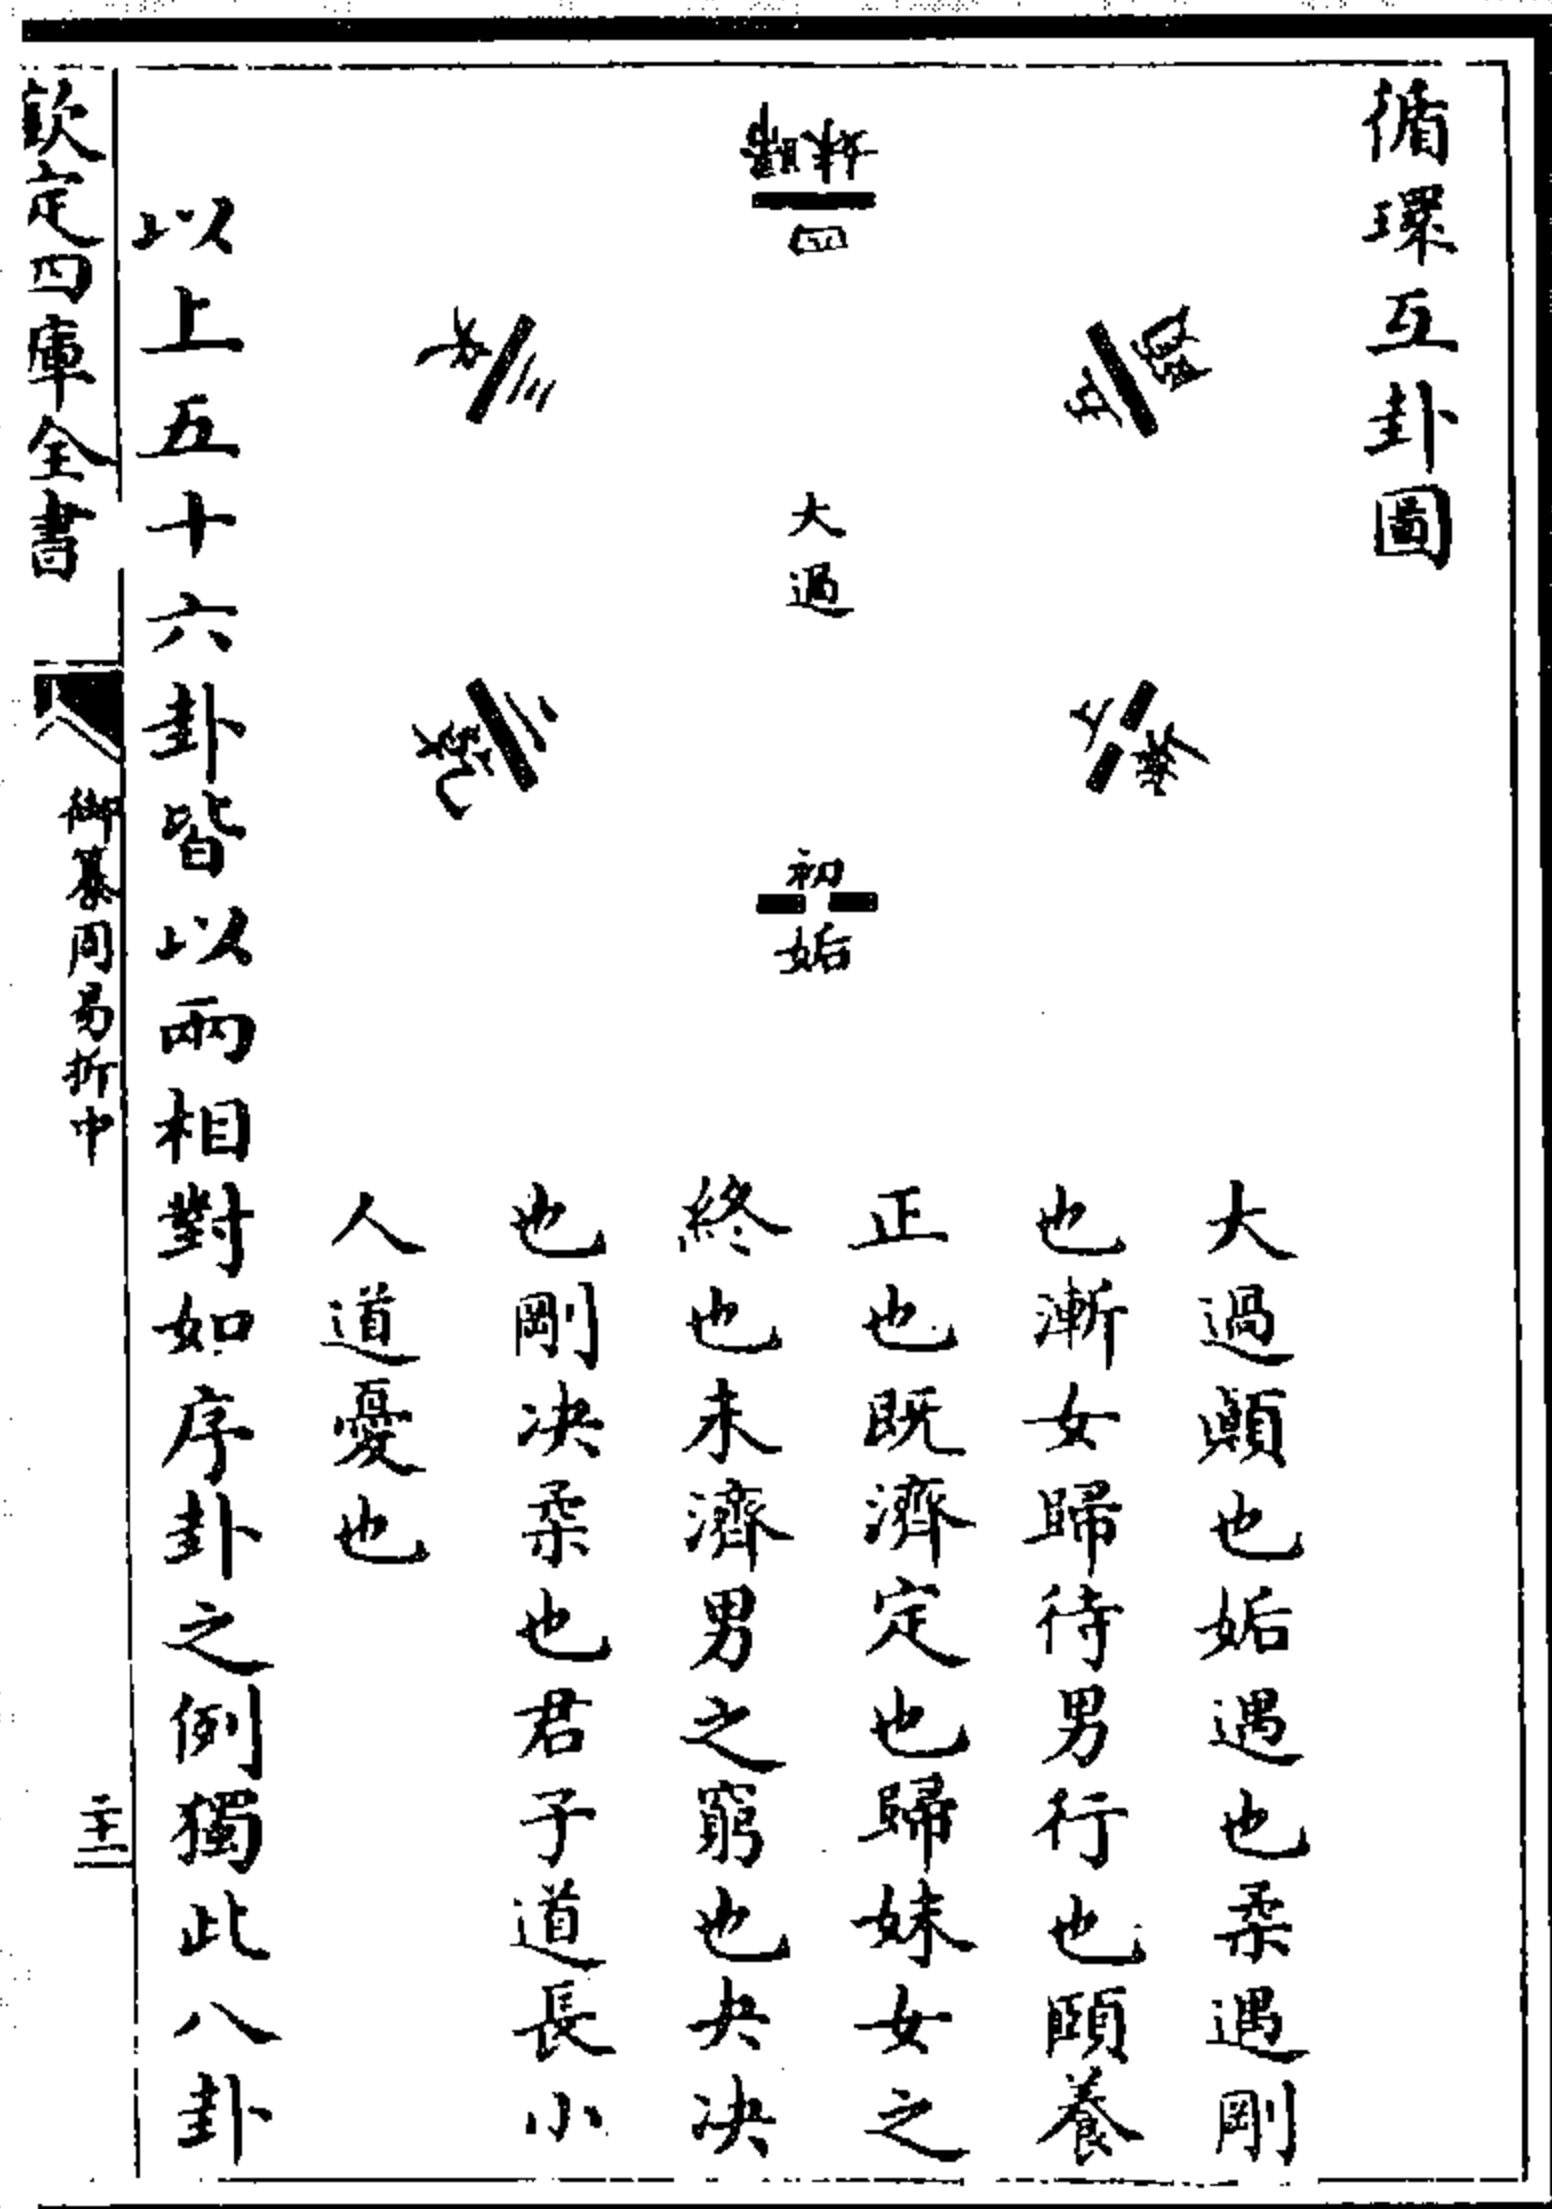 循環互卦圖
大過
初
姤
二
乾
三
夬
四
歸妹
五
頤
上
漸
大過顛也姤遇也柔遇剛
也漸女歸待男行也頤養
正也既濟定也歸妹女之
終也未濟男之窮也夬决
也剛决柔也君子道長小
人道憂也
以上五十六卦皆以兩相對如序卦之例獨此八卦
欽定四庫全書
御纂周易折中